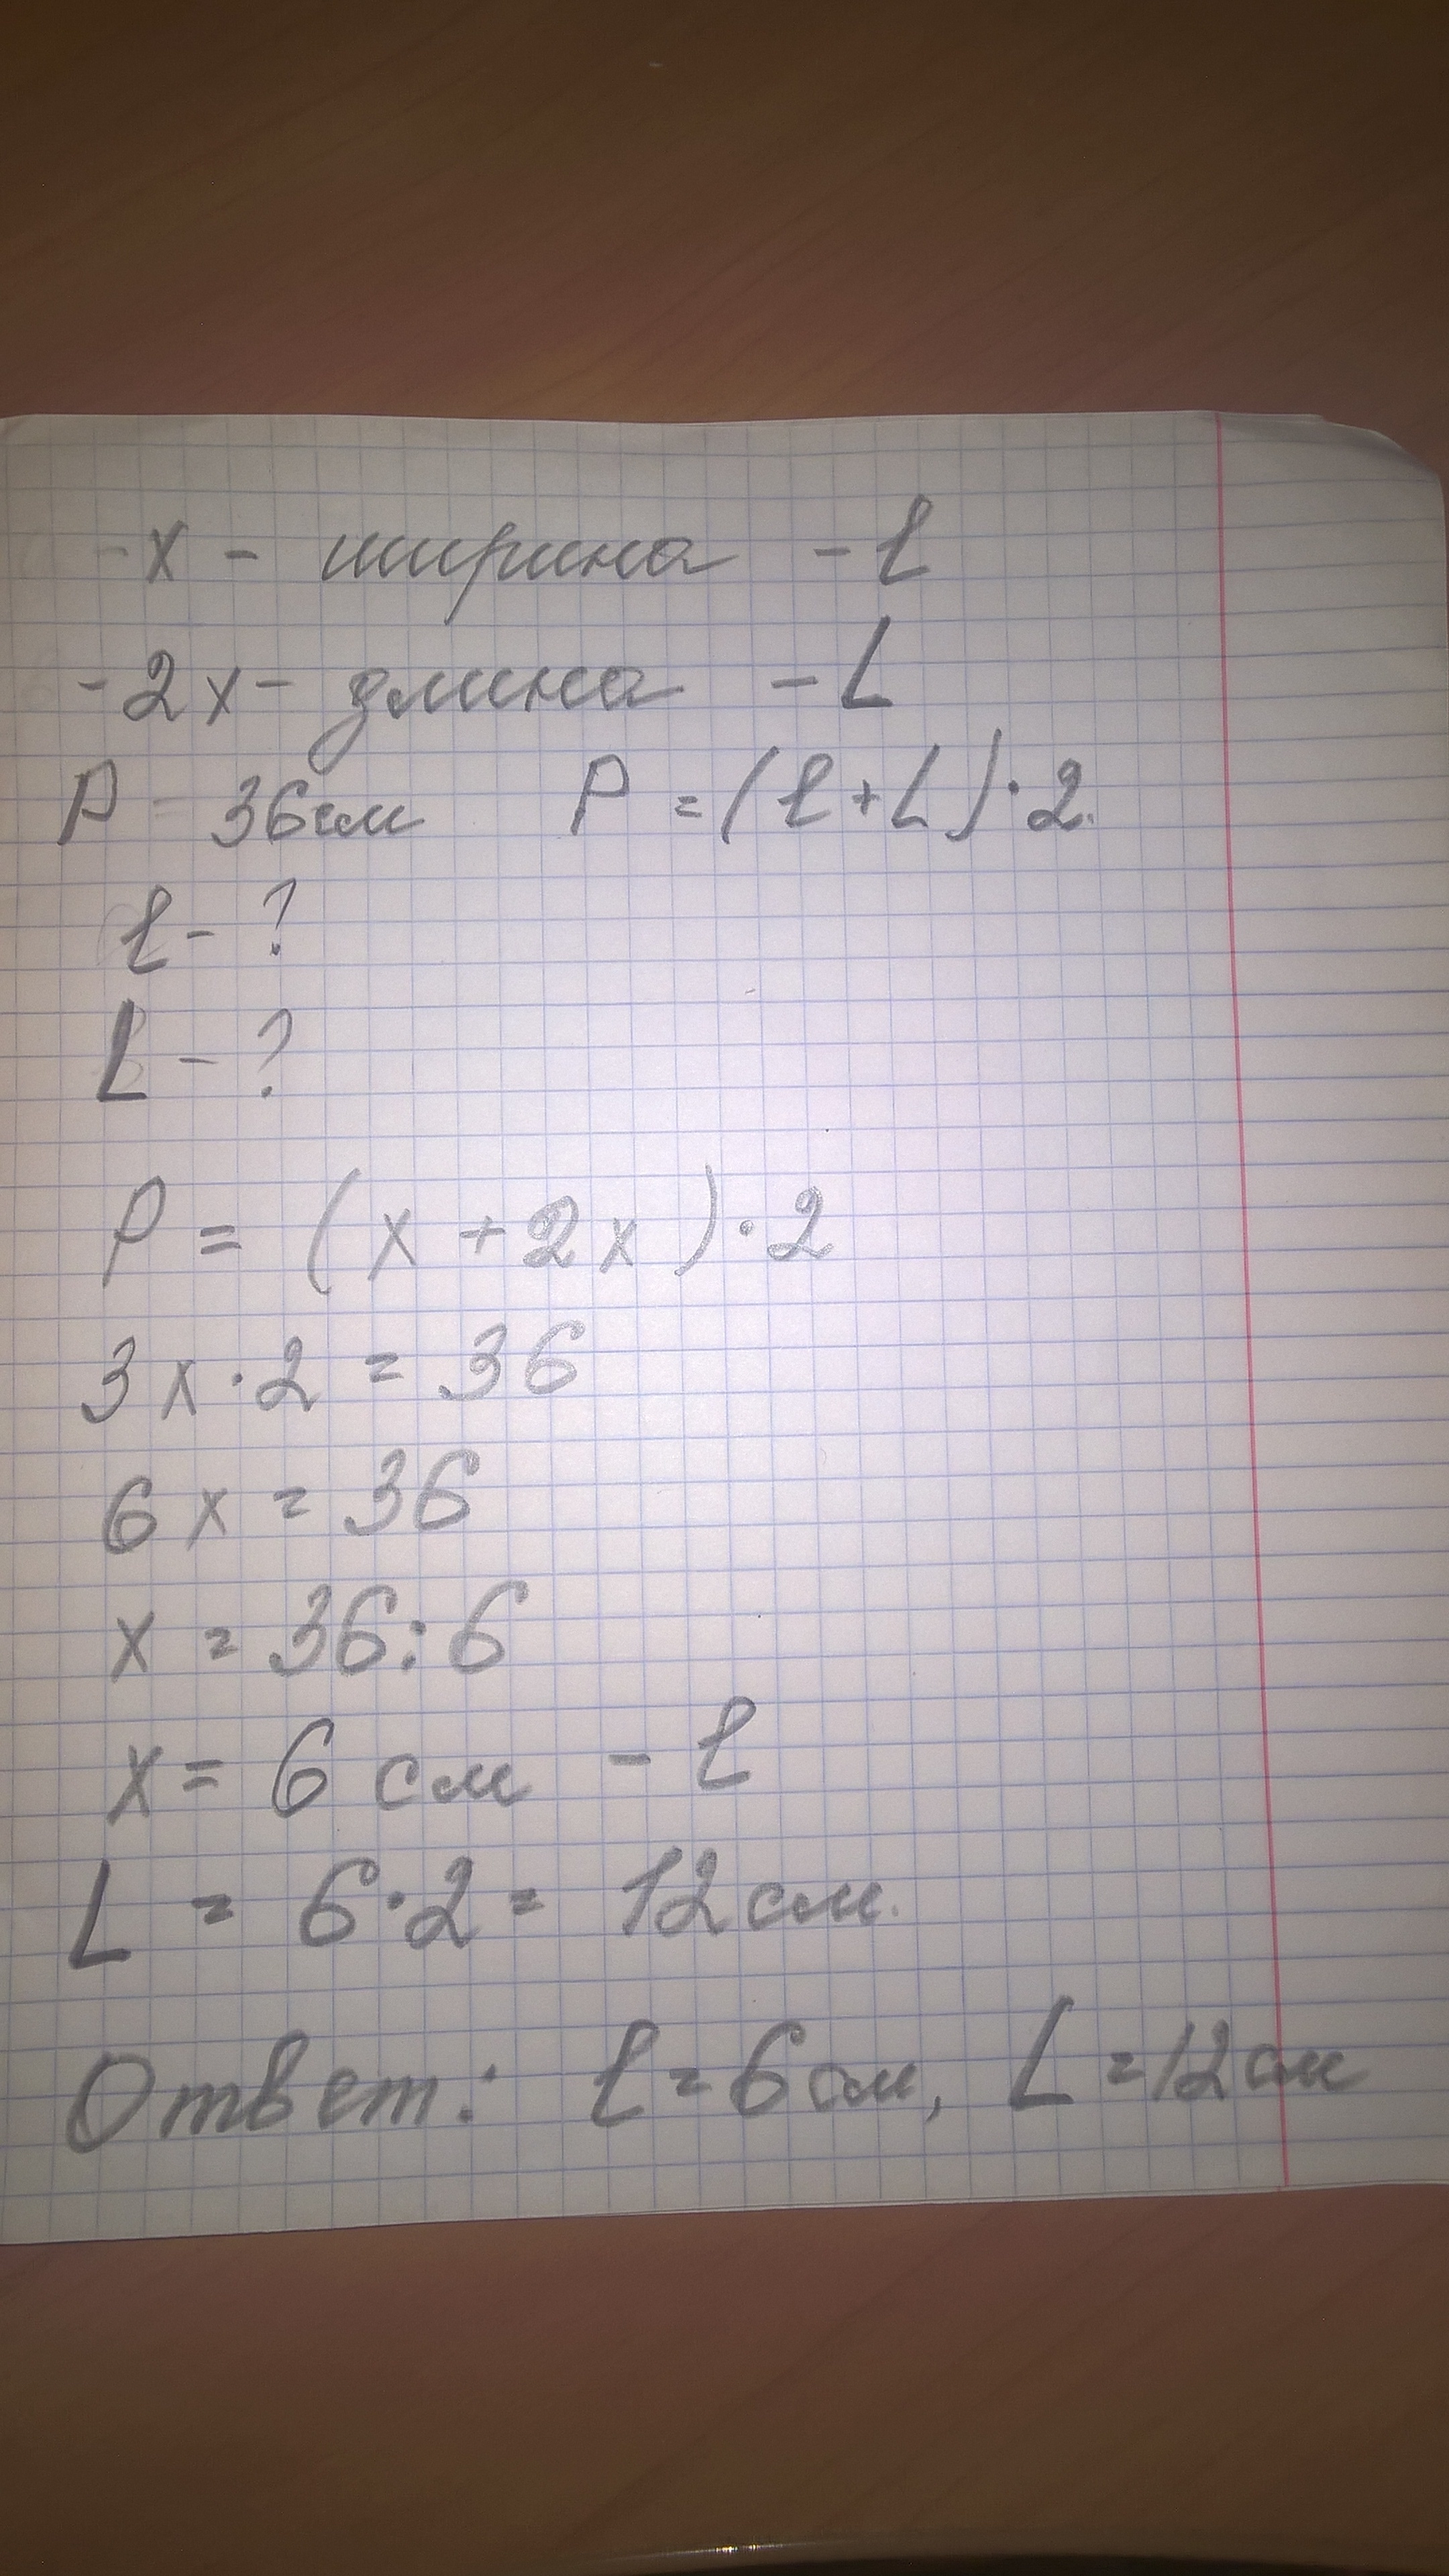 - x - ширина - l
- 2x - длина - L
P - 36см P = (l + L) · 2.
l - ?
L - ?
P = (x + 2x) · 2
3x · 2 = 36
6x = 36
x = 36 : 6
x = 6 см - l
L = 6 · 2 = 12 см.
Ответ: l = 6 см, L = 12 см